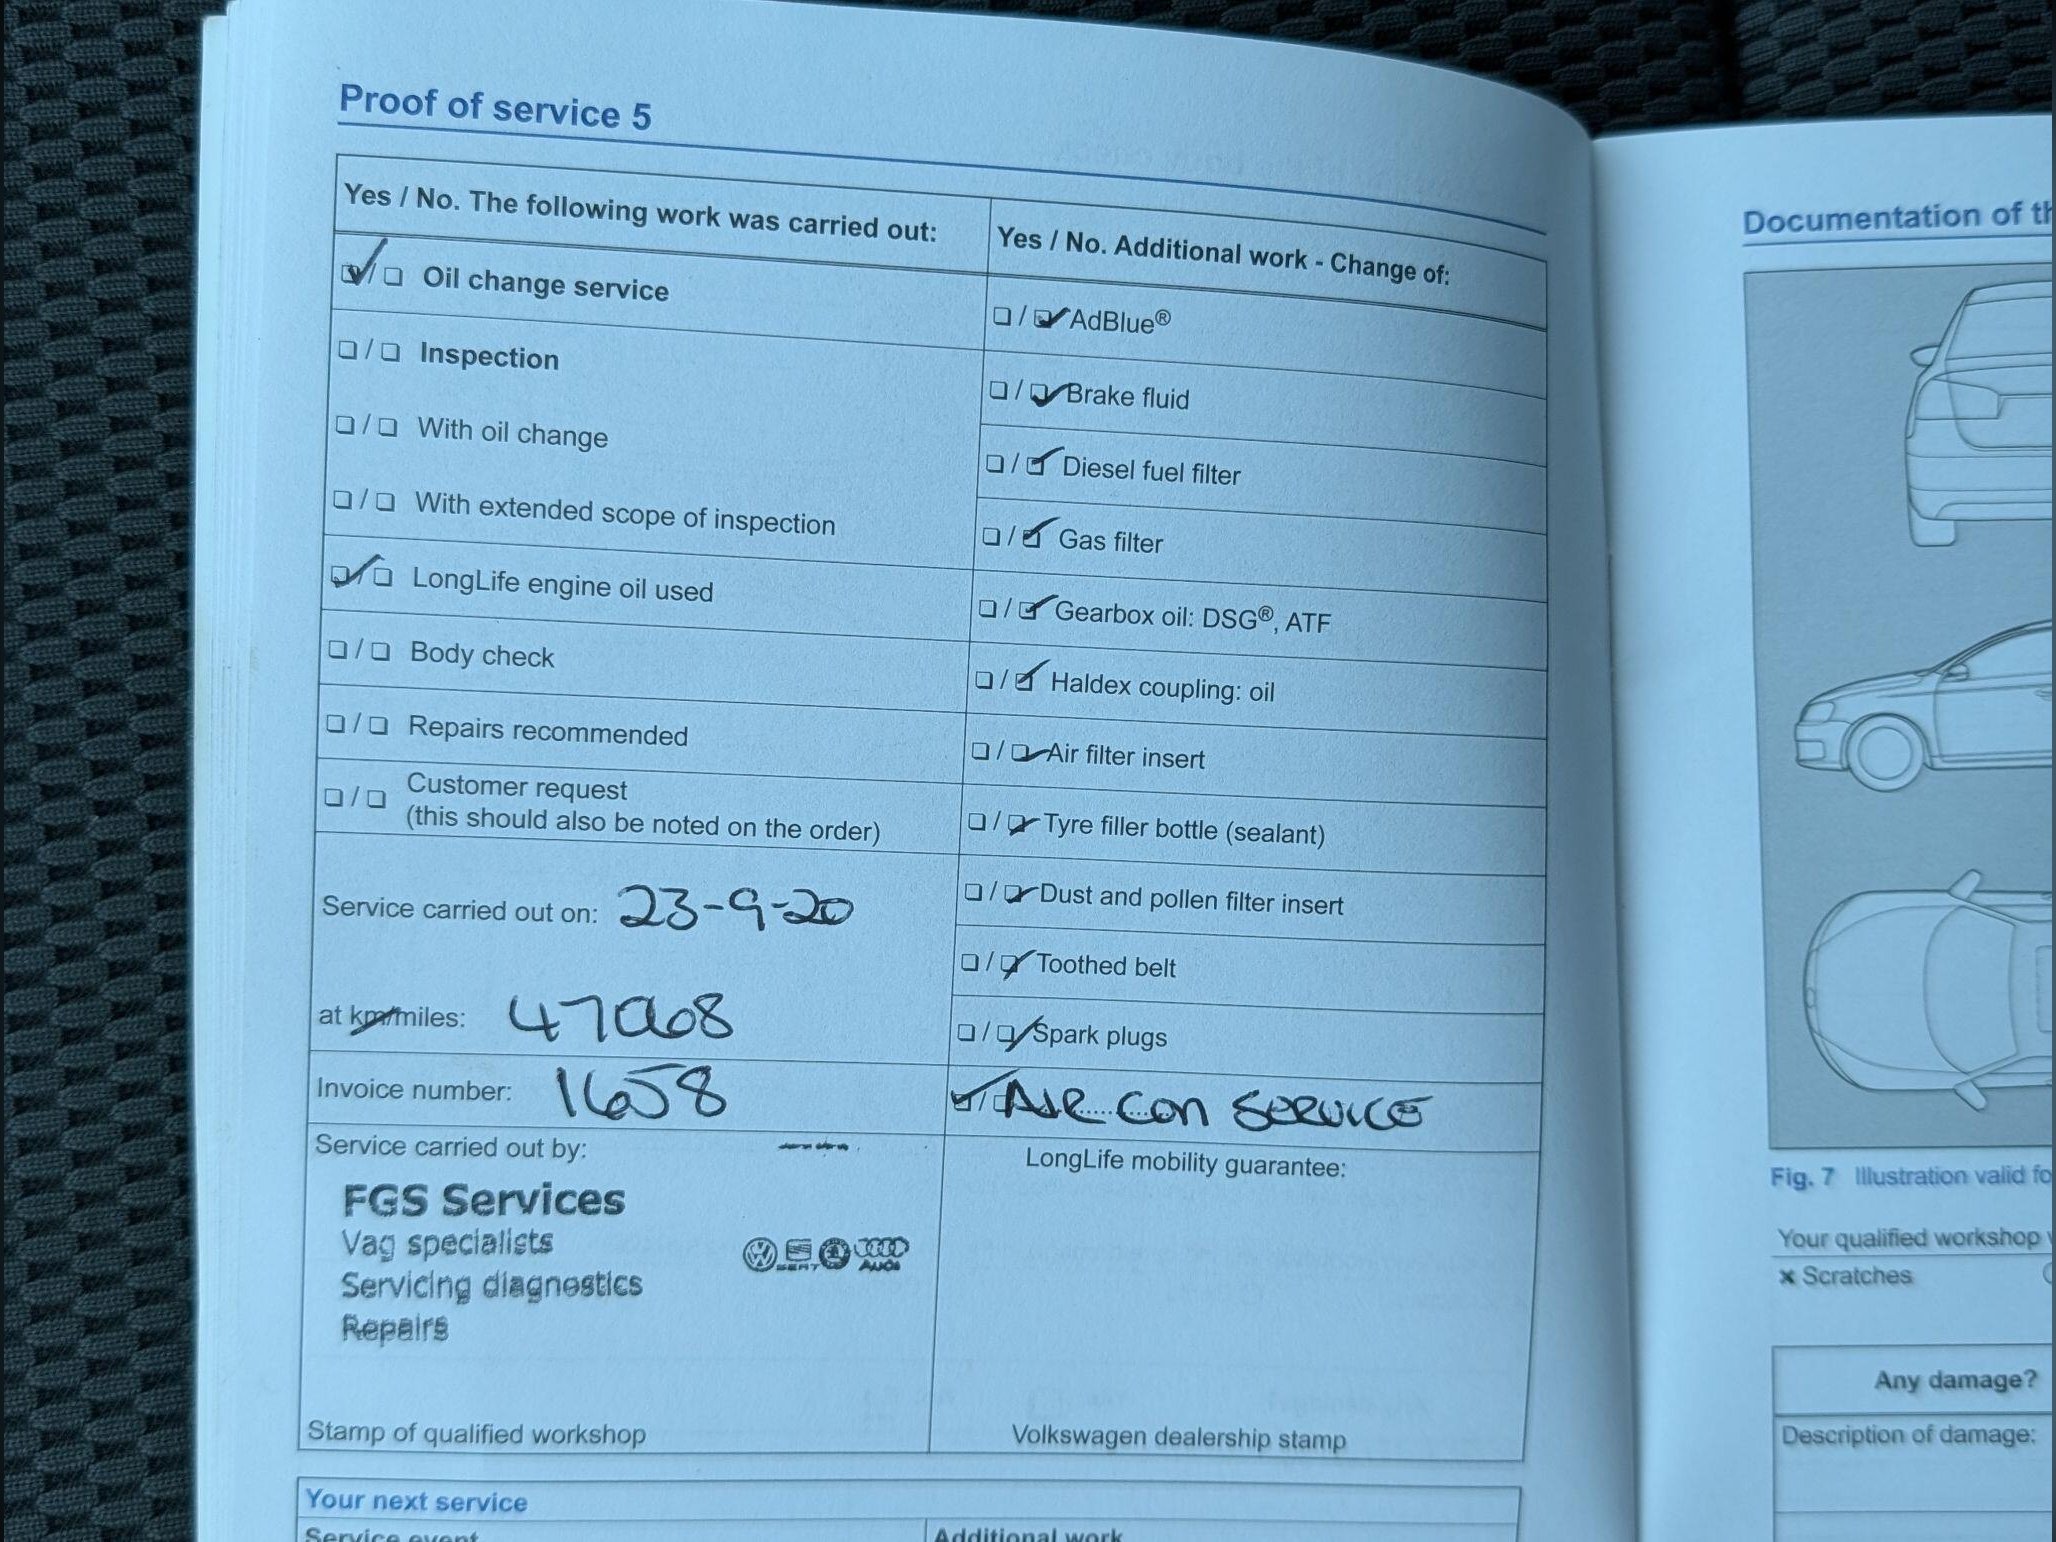 Proof of service 5
Yes / No. The following work was carried out:
Oil change service
Inspection
With oil change
With extended scope of inspection
LongLife engine oil used
Body check
Repairs recommended
Customer request
(this should also be noted on the order)
Service carried out on: 23-9-20
at km/miles: 47068
Invoice number: 1658
Service carried out by:
FGS Services
Vag specialists
Servicing diagnostics
Repairs
SEAT
AUDI
Stamp of qualified workshop
Yes / No. Additional work - Change of:
AdBlue®
Brake fluid
Diesel fuel filter
Gas filter
Gearbox oil: DSG®, ATF
Haldex coupling: oil
Air filter insert
Tyre filler bottle (sealant)
Dust and pollen filter insert
Toothed belt
Spark plugs
AIR CON SERVICE
LongLife mobility guarantee:
Volkswagen dealership stamp
Your next service
Service event
Additional work
Documentation of
Fig. 7 Illustration valid
Your qualified workshop
Scratches
Any damage?
Description of damage: